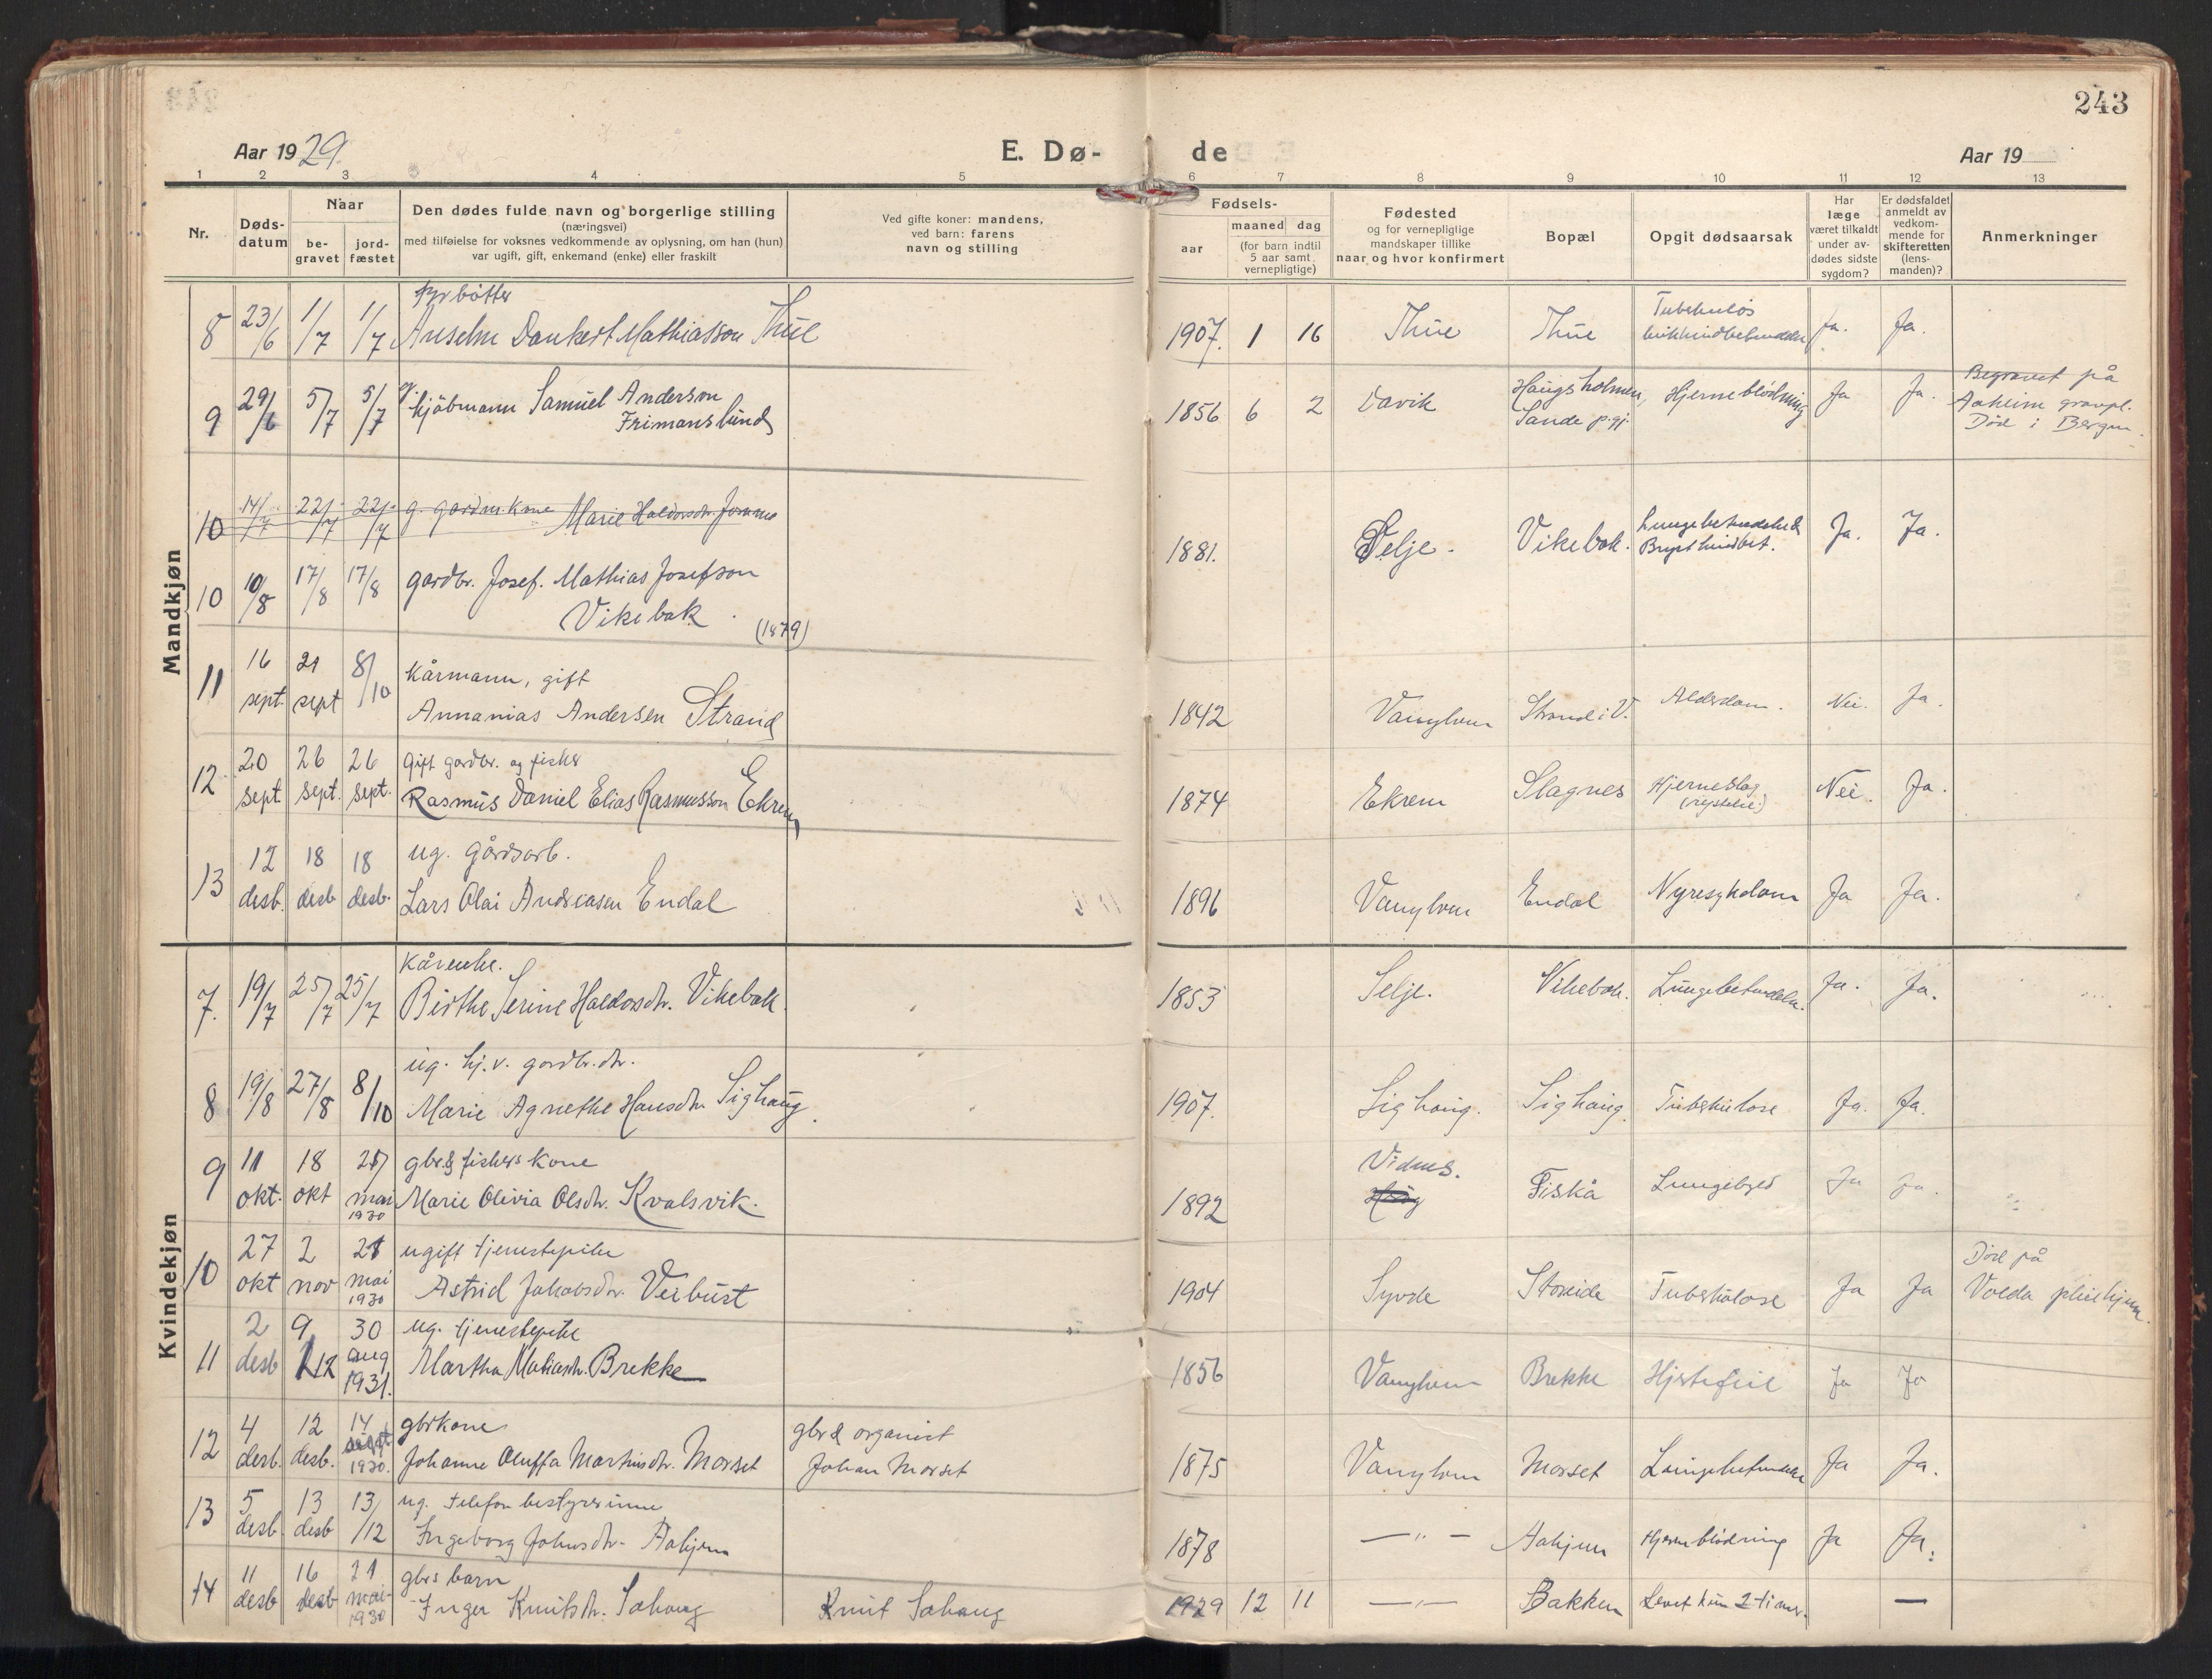 243
Aar 1929.
E. Dø-
de
Aar 19
1 2 3 4 5 6 7 8 9 10 11 12 13
Nr.
Døds-
datum
Naar
be-
gravet
jord-
fæstet
Den dødes fulde navn og borgerlige stilling
(næringsvei)
med tilføielse for voksnes vedkommende av oplysning, om han (hun)
var ugift, gift, enkemand (enke) eller fraskilt
Ved gifte koner: mandens,
ved barn: farens
navn og stilling
Fødsels-
aar
maaned dag
(for barn indtil
5 aar samt
vernepligtige)
Fødested
og for vernepligtige
mandskaper tillike
naar og hvor konfirmert
Bopæl
Opgit dødsaarsak
Har
læge
været tilkaldt
under av-
dødes sidste
sygdom?
Er dødsfaldet
anmeldt av
vedkom-
mende for
skifteretten
(lens-
manden)?
Anmerkninger
Mandkjøn
fyrbøtter
8 23/6 1/7 1/7 Anselm Dankert Mathiasson Thue 1907. 1 16 Thue Thue Tuberkuløs Ja. Ja.
9 29/6 5/7 5/7 g. kjøbmann Samuel Anderson
Frimanslund
1856 6 2 Davik Haugsholmen,
Sande p.gj.
Hjerneblødning Ja Ja. Begravet på
Aaheim gravpl.
Død i Bergen.
10 14/7 22/7 22/7 g. gardm. kone Marie Haldorsdtr.
10 10/8 17/8 17/8 gardbr. Josef. Mathias Josefson
Vikebak.
(1879)
1881. Selje. Vikebak. Lungebetendelse &
Brysthindbet.
Ja. Ja.
11 16 sept. 21 sept 8/10 Kårmann, gift
Annanias Andersen Strand
1842 Vanylven Strand i V. Alderdom. Nei. Ja.
12 20 sept 26 sept. 26 sept. gift gardbr. og fisker
Rasmus Daniel Elias Rasmusson Ekrem
1874 Ekrem Slagnes Hjerneslag Nei. Ja.
13 12 desb. 18 desb 18 desb. ug. gårdsarb.
Lars Olai Andreasen Endal
1896 Vanylven Endal Nyresykdom Ja Ja.
Kvindekjøn
7. 19/7 25/7 25/7 Kårenke.
Birthe Serine Haldorsdtr. Vikebak.
1853 Selje. Vikebak. Lungebetendelse. Ja. Ja.
8 19/8 27/8 8/10 ug. hj.v. gardbr.dtr.
Marie Agnethe Hansdtr. Sighaug.
1907. Sighaug. Sighaug. Tuberkulose Ja. Ja.
9 11 okt. 18 okt mai 1930 gbr & fiskers kone
Marie Olivia Olsdtr. Kvalsvik.
1892 Vidnes. Fiskå Ja Ja.
10 27 okt 2 nov 21 mai 1930 ugift tjenestepike
Astrid Jakobsdtr. Veibust
1904 Syvde Storeide Tuberkulose Ja Ja Død på
Volda pleiehjem.
11 2 desb 9 12 30 aug 1931. ug. tjenestepike
Martha Matiasdtr. Brekke
1856 Vanylven Brekke Hjertefeil Ja Ja
12 4 desb. 12 desb. 14 sept 1930. gbrkone
Johanne Oluffa Martinsdtr. Morset
gbr & organist
Johan Morset
1875 Vanylven Morset Lungebetendelse Ja Ja.
13 5 desb. 13 desb 13/12 ug. telefonbestyrerinne
Ingeborg Johnsdtr. Aahjem
1878 — " — Aahjem Hjerneblødning Ja Ja.
14 11 desb 16 desb 21 mai 1930 gbrs barn
Inger Knutsdtr. Sahaug
Knut Sahaug
1929 12 11 — " — Bakken Levet kun 2 timer. —